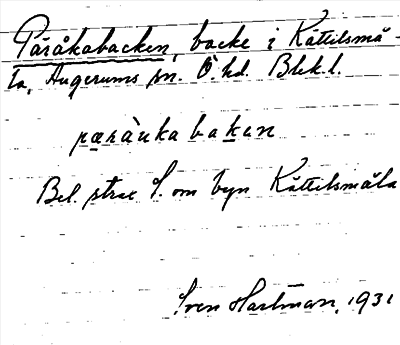 Påråkabacken, backe i Kättilsmå-
la, Augerums sn. Ö. hd. Blek.l.
pæråuka baken
Bel. strax S. om byn Kättilsmåla
Sven Hartman, 1931